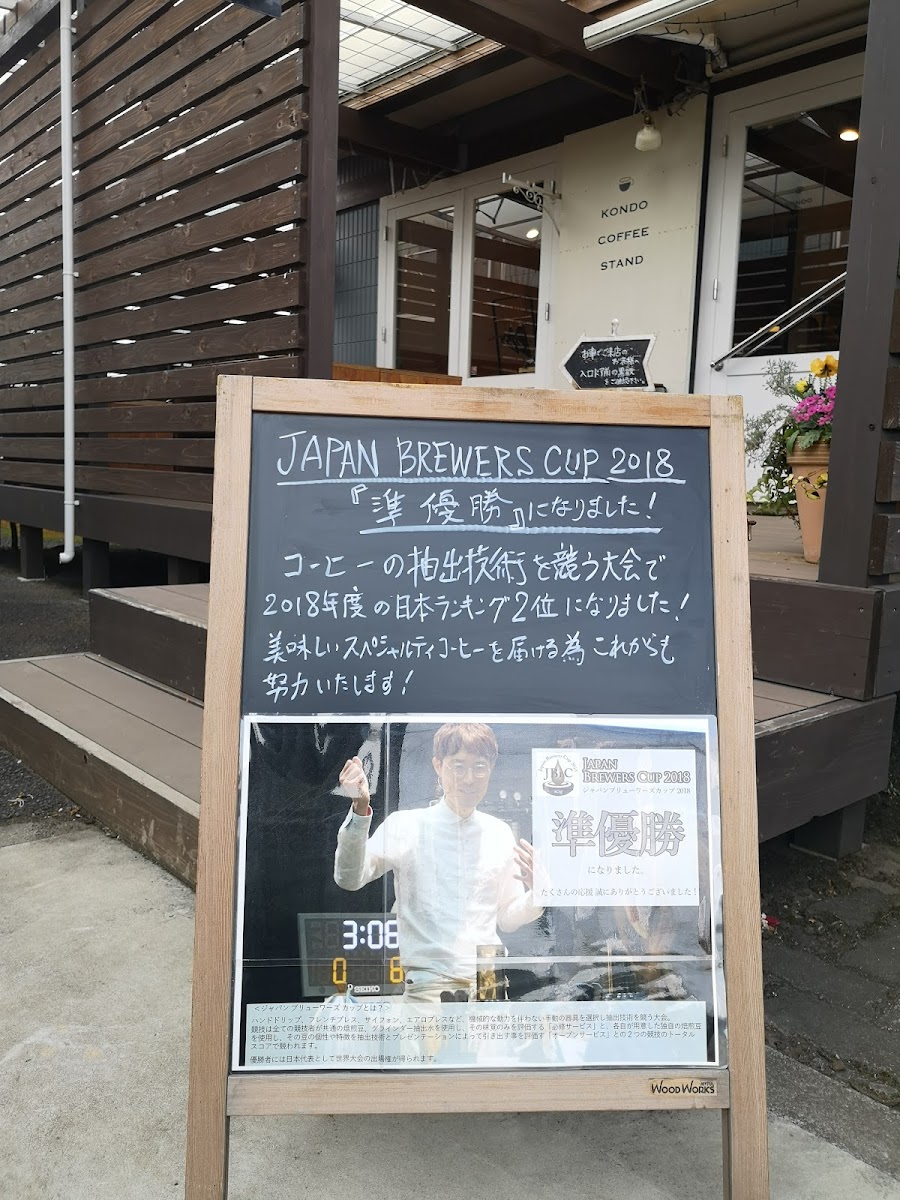 KONDO
COFFEE
STAND
お車でご来店の
お客様へ
入口の黒板
をご確認下さい。
JAPAN BREWERS CUP 2018
『準優勝』になりました!
コーヒーの抽出技術を競う大会で
2018年度の日本ランキング2位になりました!
美味しいスペシャルティコーヒーを届ける為これからも
努力いたします!
JAPAN
BREWERS CUP 2018
ジャパンブリューワーズカップ 2018
準優勝
になりました。
たくさんの応援 誠にありがとうございました!
3:06
0 6
SEIKO
<ジャパン ブリューワーズ カップとは?>
ハンドドリップ、フレンチプレス、サイフォン、エアロプレスなど、機械的な動力を伴わない手動の器具を選択し抽出技術を競う大会。
競技は全ての競技者が共通の焙煎豆、グラインダー抽出水を使用し、その味覚のみを評価する「必修サービス」と、各自が用意した独自の焙煎豆
を使用し、その豆の個性や特徴を抽出技術とプレゼンテーションによって引き出す事を評価す「オープンサービス」との2つの競技のトータル
スコアで競われます。
優勝者には日本代表として世界大会の出場権が得られます。
WOODWORKS